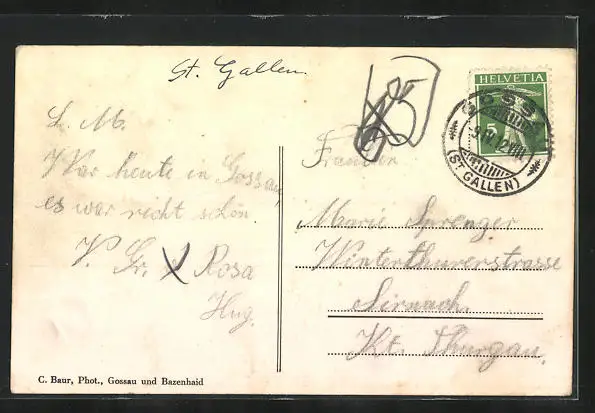 St. Gallen
L. M.
War heute in Gossau,
es war recht schön.
V. Gr. Rosa
Hug.
C. Baur, Phot., Gossau und Bazenhaid
HELVETIA
5
GOSSAU
(ST GALLEN)
Fräulein
Marie Sprenger
Winterthurerstrasse
Sirnach.
Kt. Thurgau.